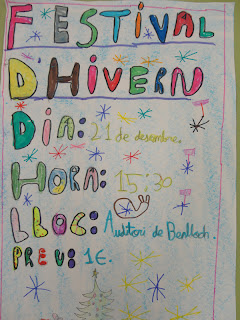 FESTIVAL
D'HIVERN
DIA: 21 de desembre.
HORA: 15:30
LLOC: Auditori de Benlloch.
PREU: 1€.